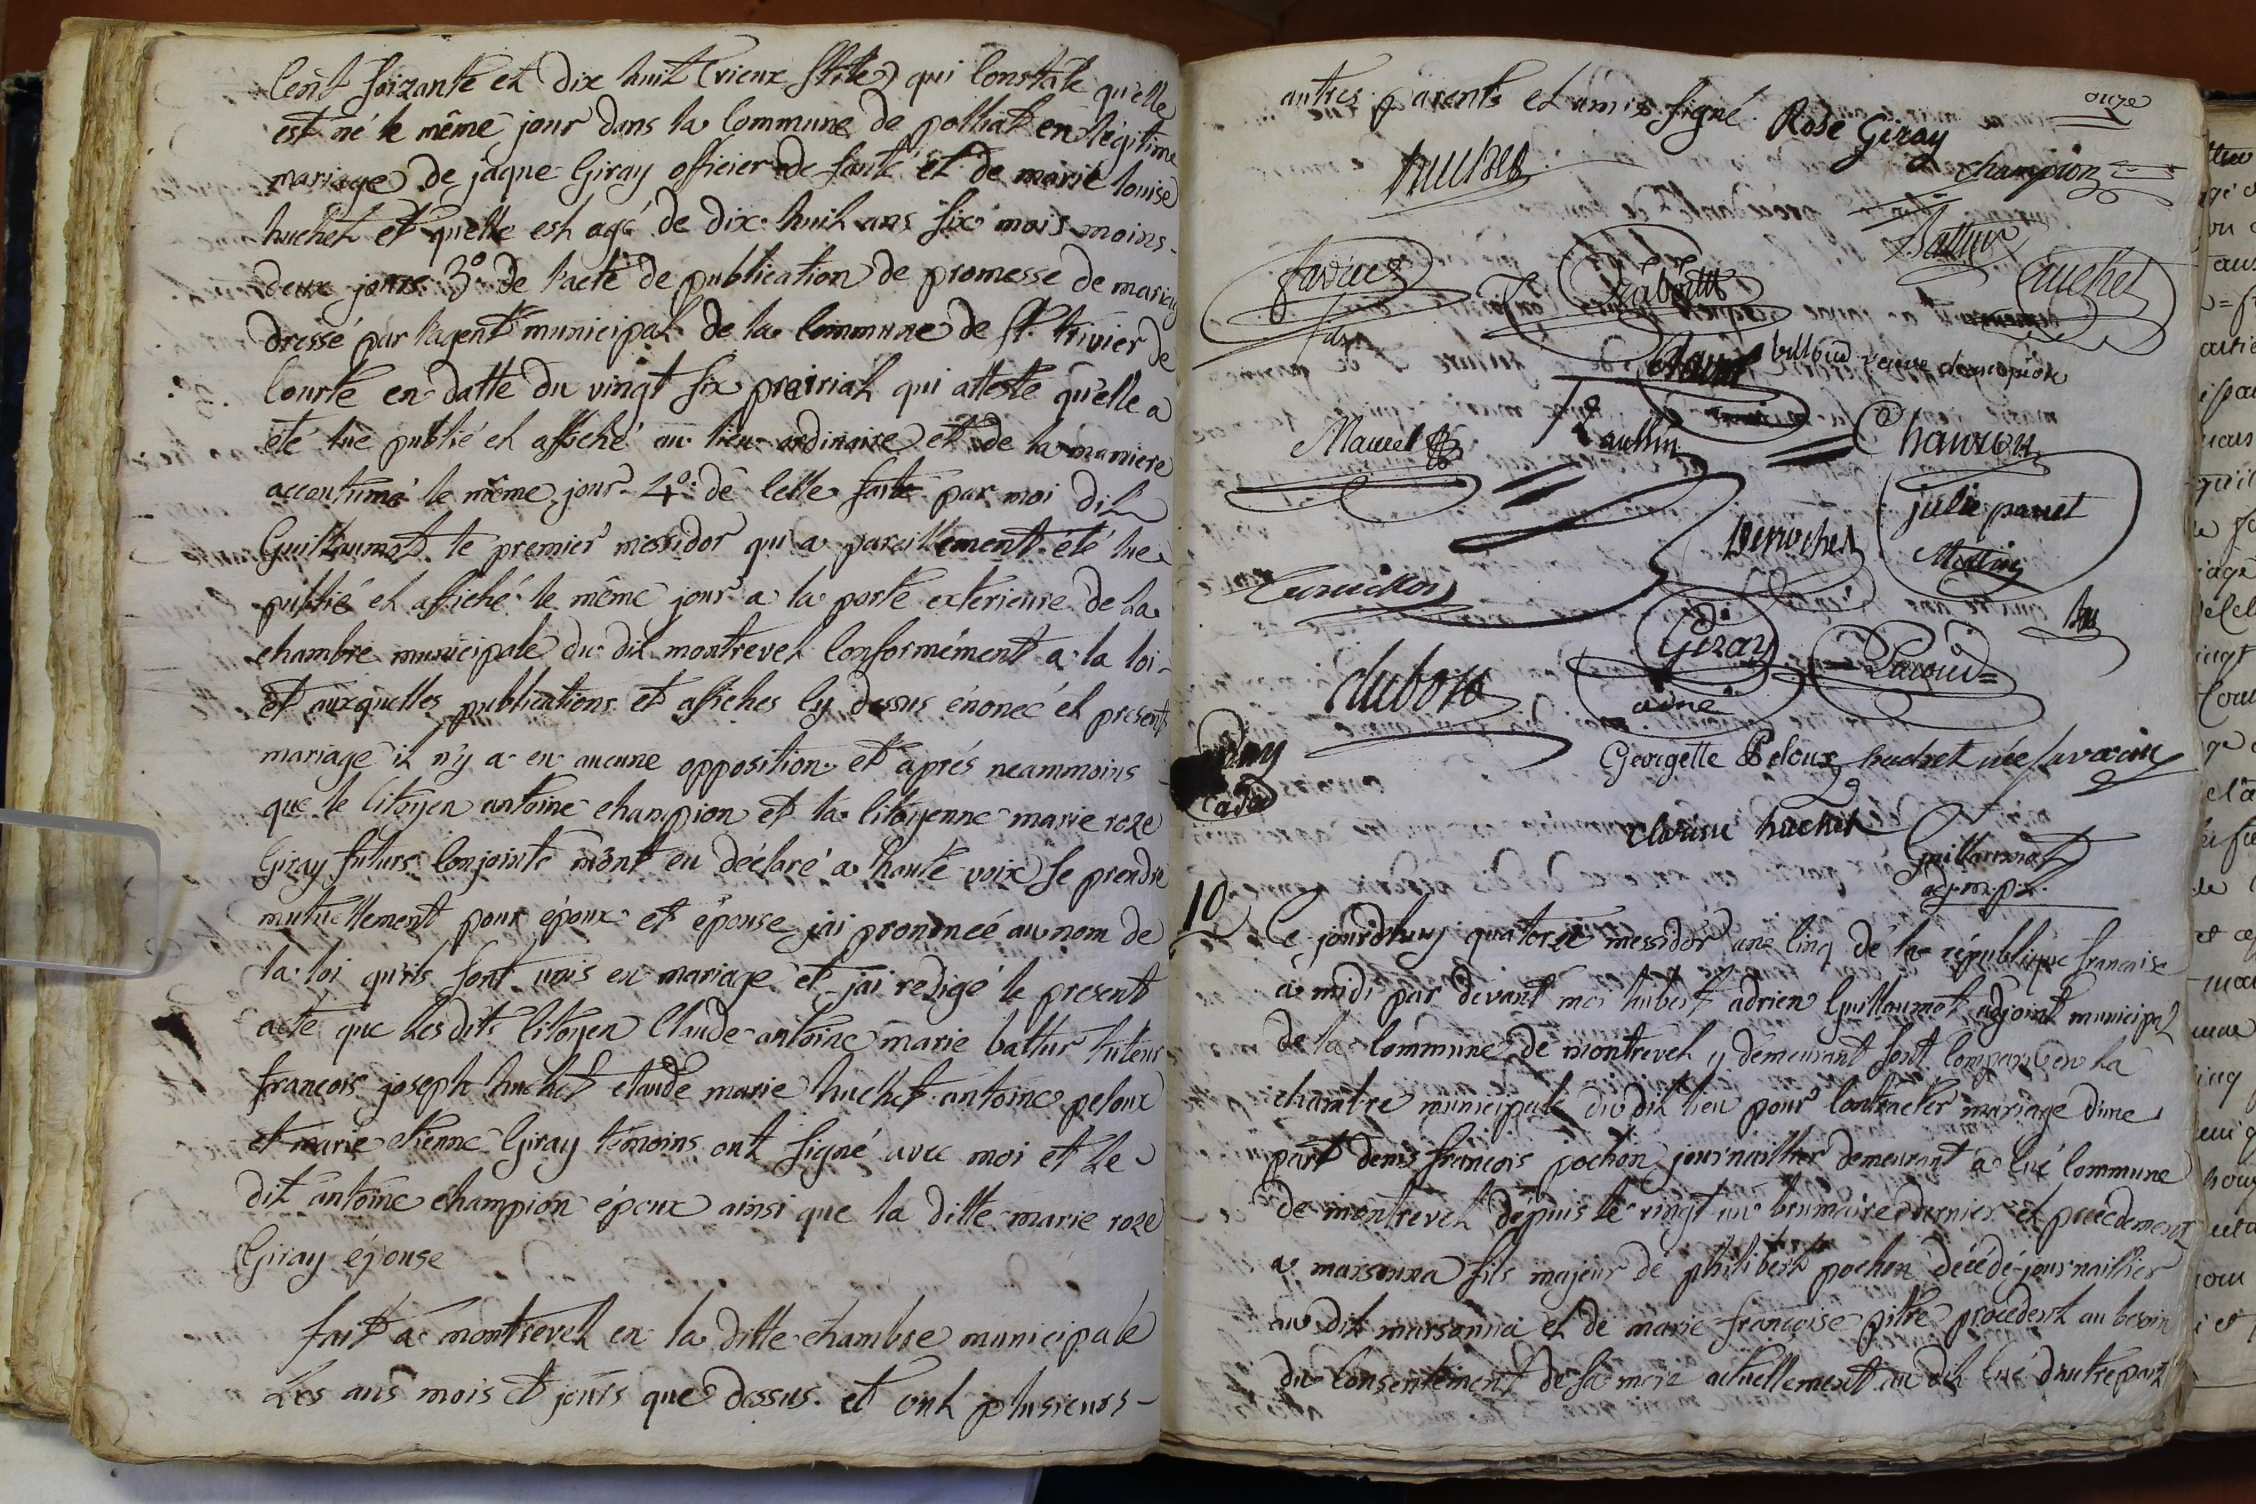 Cent soizante et dix huit (vieux stile) qui Constate qu'elle
est né le même jour dans la Commune de polliat en légitime
mariage de jaque Giray officier de santé et de marie louise
huchet et quelle est agé de dix huit ans six mois moins
deux jours 3° de l'acte de publication de promesse de mariag
dressé par l'agent municipal de la Commune de st. trivier de
Courte en datte du vingt six prairial qui atteste qu'elle a
été lue publié et affiché au lieu ordinaire et de la maniere
accoutumé le même jour 4° de Celle faite par moi dit
Guillaumot le premier messidor qui a pareillement été lue
publié et affiché le même jour a la porte exterieure de la
chambre municipale du dit montrevel Conformément a la loi
et auxquelles publications et affiches Cy dessus énoncé et present
mariage il n'y a eu aucune opposition et après neammoins
que le Citoyen antoine champion et la Citoyenne marie roze
Giray futurs Conjoints m'ont eu déclaré a haute voix se prendre
mutuellement pour époux et épouse j'ai prononcé au nom de
la loi qu'ils sont unis en mariage et j'ai redigé le present
acte que les dits Citoyen Claude antoine marie battur tuteur
françois joseph huchet claude marie huchet antoine peloux
et marie etienne Giray témoins ont signé avec moi et le
dit antoine champion époux ainsi que la ditte marie roze
Giray épouse
fait a montrevel en la ditte chambre municipale
Les ans mois et jours que dessus et ont plusieurs
autres parents et amis signé Rose Giray
onze
huchet
champion
Battur
favier
huchet
fils
veuve champion
Mauvel
Paullin
Chauvon
julie panet
Desroches
Mollin
Cuvillon
Giray
ainé
Pacoud
dubois
Giray
Cadet
Georgette Peloux huchet née favarin
clorine huchet
Guillaumot
adj. m. p.
10
Ce jourdhuy quatorze messidor ans Cinq de la république française
a midi par devant moi hubert adrien Guillaumot adjoint municipal
de la Commune de montrevel y demeurant sont Comparu en la
chambre municipale du dit lieu pour Contracter mariage d'une
part denis françois pochon journaillier demeurant a Cué Commune
de montrevel depuis le vingt un brumaire dernier et précedement
a marsonna fils majeur de philibert pochon décédé journaillier
au dit marsonna et de marie françoise pitre procedent au besoin
du Consentement de sa mere actuellement au dit Cué d'autre part